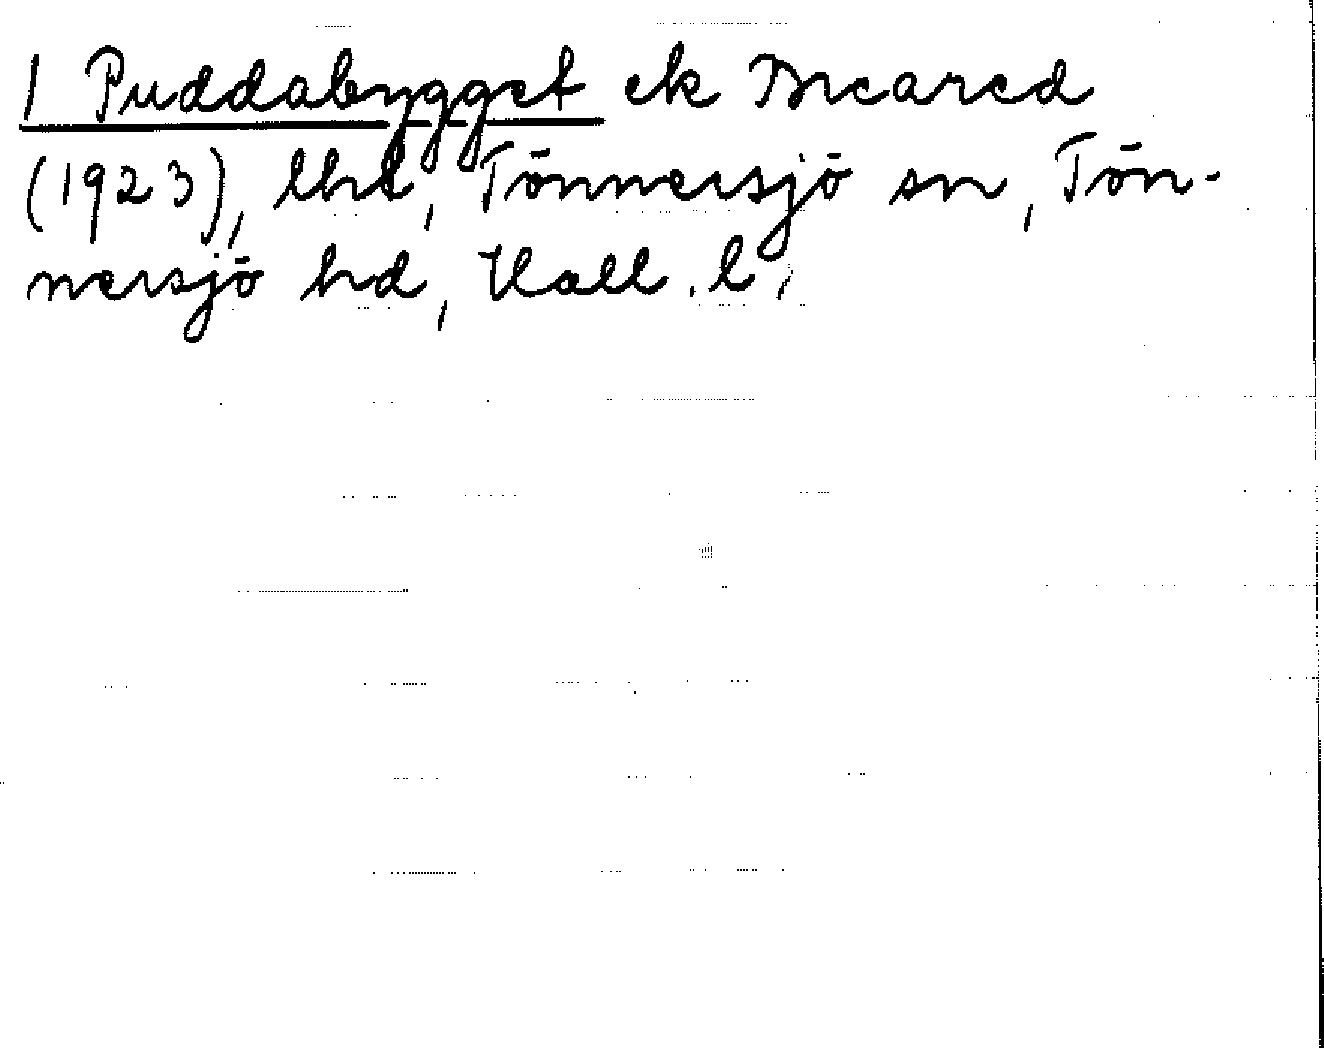 1 Puddabygget ek Breared
(1923), lht, Tönnersjö sn, Tön-
nersjö hd, Hall. l.